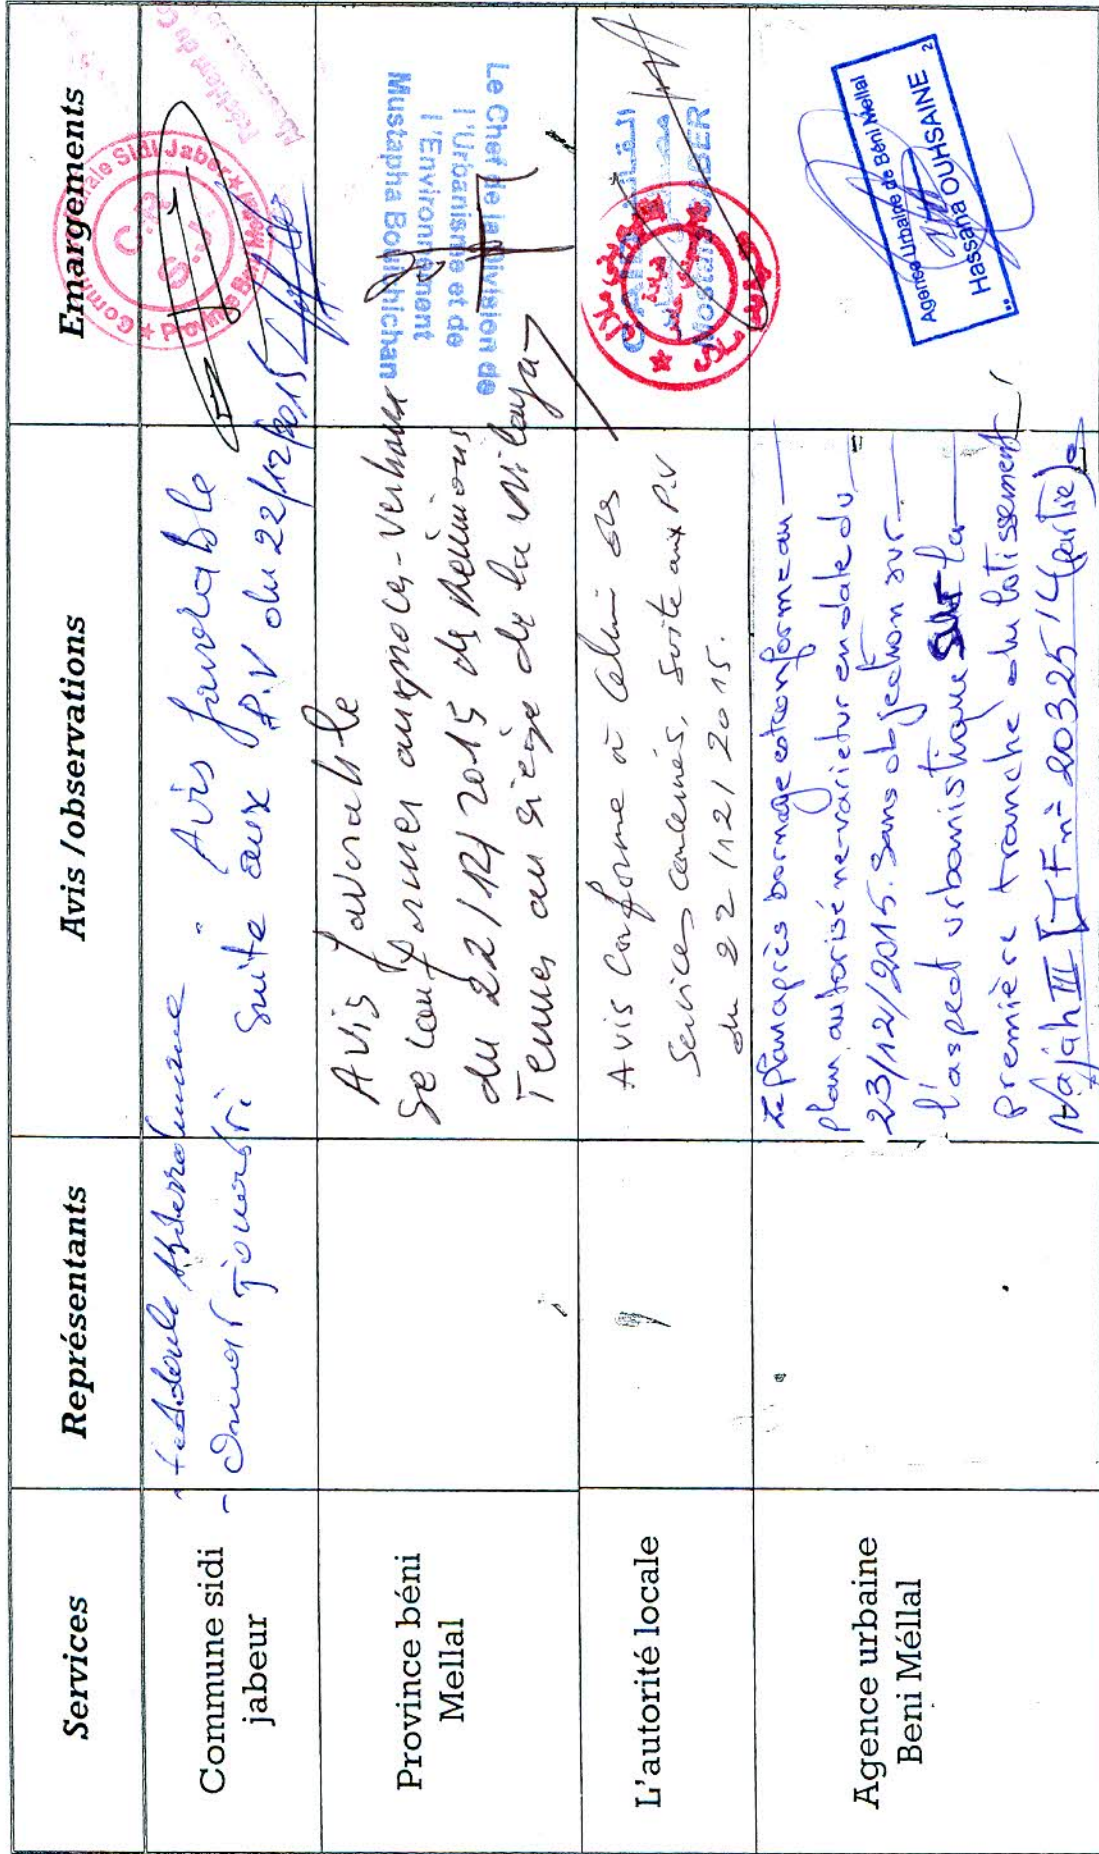 Services
Représentants
Avis /observations
Emargements
Commune sidi
jabeur
- Omar
Avis favorable
suite aux P.V du 22/12/2015
Communale Sidi Jaber
C.R
S.J
Province Béni Mellal
Président du C
Province béni
Mellal
Avis favorable
se conformer aux procès-verbaux
du 22/12/2015 de réunions
Tenues au siège de la wilaya
Le Chef de la Division de
l'Urbanisme et de
l'Environnement
Mustapha Bouhichan
L'autorité locale
Avis conforme à celui des
Services concernés, suite aux P.V
du 22/12/2015.
Agence urbaine
Beni Méllal
Le plan après bornage est conforme au
plan autorisé ne-varietur en date du
23/12/2015. Sans objection sur
l'aspect urbanistique sur la
première tranche du lotissement
Najah III [TF n° 20325/ (partie).
Agence Urbaine de Béni Mellal
Hassana OUHSAINE
2